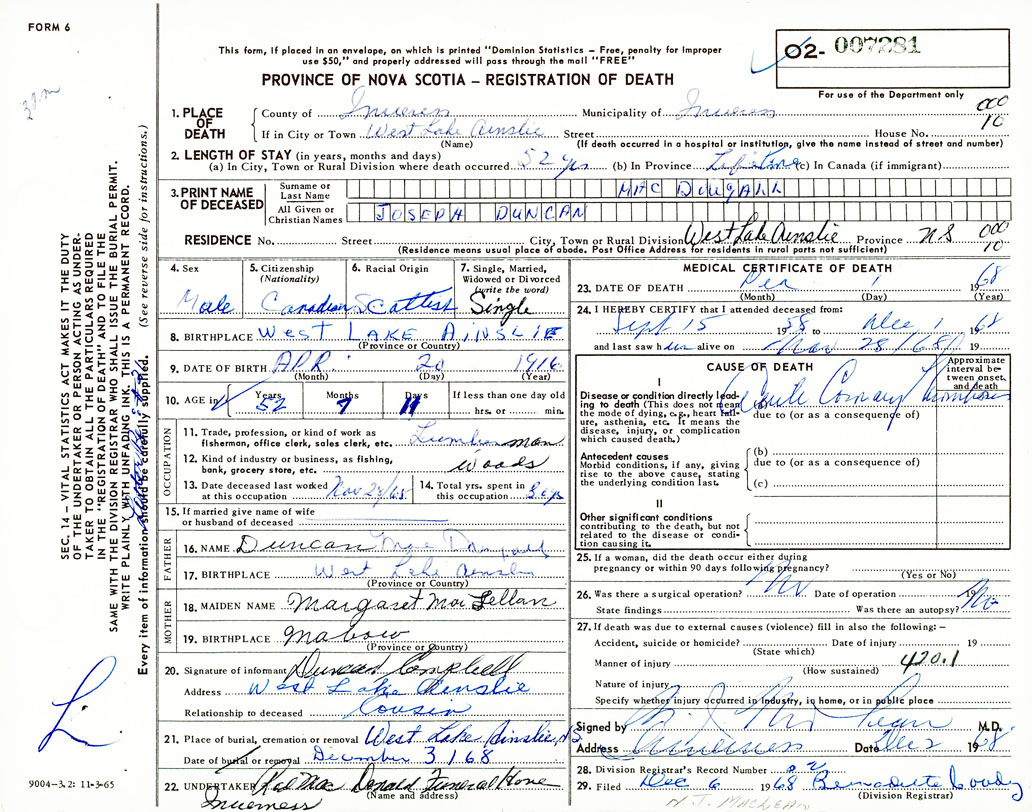 FORM 6
This form, if placed in an envelope, on which is printed "Dominion Statistics – Free, penalty for improper
use $50," and properly addressed will pass through the mail "FREE"
PROVINCE OF NOVA SCOTIA – REGISTRATION OF DEATH
02- 007281
For use of the Department only
1. PLACE OF DEATH
County of Inverness Municipality of Inverness 000
If in City or Town West Lake Ainslie Street House No. 10
(Name) (If death occurred in a hospital or institution, give the name instead of street and number)
2. LENGTH OF STAY (in years, months and days)
(a) In City, Town or Rural Division where death occurred 52 yrs (b) In Province Lifetime (c) In Canada (if immigrant)
3. PRINT NAME OF DECEASED
Surname or Last Name MAC DOUGALL
All Given or Christian Names JOSEPH DUNCAN
RESIDENCE No. Street City, Town or Rural Division West Lake Ainslie Province NS 000
(Residence means usual place of abode. Post Office Address for residents in rural parts not sufficient) 10
4. Sex
Male
5. Citizenship
(Nationality)
Canadian
6. Racial Origin
Scottish
7. Single, Married,
Widowed or Divorced
(write the word)
Single
8. BIRTHPLACE WEST LAKE AINSLIE
(Province or Country)
9. DATE OF BIRTH APR. 20 1916
(Month) (Day) (Year)
10. AGE in Years Months Days If less than one day old
52 7 11 hrs. or min.
OCCUPATION
11. Trade, profession, or kind of work as
fisherman, office clerk, sales clerk, etc. Lumberman
12. Kind of industry or business, as fishing,
bank, grocery store, etc. Woods
13. Date deceased last worked
at this occupation Nov 28/68
14. Total yrs. spent in
this occupation 30 yrs
15. If married give name of wife
or husband of deceased
FATHER
16. NAME Duncan Mac Dougall
17. BIRTHPLACE West Lake Ainslie
(Province or Country)
MOTHER
18. MAIDEN NAME Margaret MacLellan
19. BIRTHPLACE Mabou
(Province or Country)
20. Signature of informant Duncan Campbell
Address West Lake Ainslie
Relationship to deceased Cousin
21. Place of burial, cremation or removal West Lake Ainslie, NS
Date of burial or removal December 3/68
22. UNDERTAKER Mac Donald Funeral Home
(Name and address)
Inverness
MEDICAL CERTIFICATE OF DEATH
23. DATE OF DEATH Dec 1 1968
(Month) (Day) (Year)
24. I HEREBY CERTIFY that I attended deceased from:
Sept 15 1958 to Dec 1 1968
and last saw him alive on Nov 28/68 19
CAUSE OF DEATH
Approximate
interval be-
tween onset
and death
I
Disease or condition directly lead-
ing to death (This does not mean
the mode of dying, e.g., heart fail-
ure, asthenia, etc. It means the
disease, injury, or complication
which caused death.)
(a) Acute Coronary Thrombosis
due to (or as a consequence of)
Antecedent causes
Morbid conditions, if any, giving
rise to the above cause, stating
the underlying condition last.
(b)
due to (or as a consequence of)
(c)
II
Other significant conditions
contributing to the death, but not
related to the disease or condi-
tion causing it.
25. If a woman, did the death occur either during
pregnancy or within 90 days following pregnancy?
(Yes or No)
26. Was there a surgical operation? No Date of operation 19
State findings Was there an autopsy? No
27. If death was due to external causes (violence) fill in also the following: –
Accident, suicide or homicide? Date of injury 19
(State which)
Manner of injury 420.1
(How sustained)
Nature of injury
Specify whether injury occurred in industry, in home, or in public place
Signed by M.D.
Address Inverness Date Dec 2 1968
28. Division Registrar's Record Number
29. Filed Dec 6 1968 Bernadette
(Division Registrar)
N.J. MACLEAN
SEC. 14 – VITAL STATISTICS ACT MAKES IT THE DUTY
OF THE UNDERTAKER OR PERSON ACTING AS UNDER-
TAKER TO OBTAIN ALL THE PARTICULARS REQUIRED
IN THE "REGISTRATION OF DEATH" AND TO FILE THE
SAME WITH THE DIVISION REGISTRAR WHO SHALL ISSUE THE BURIAL PERMIT.
WRITE PLAINLY WITH UNFADING INK. THIS IS A PERMANENT RECORD.
Every item of information should be carefully supplied. (See reverse side for instructions.)
9004-3.2: 11-3-65